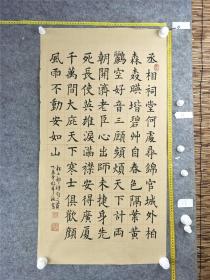 丞相祠堂何處尋錦官城外柏
森森映堦碧草自春色隔葉黄
鸝空好音三顧頻煩天下計兩
朝開濟老臣心出師未捷身先
死長使英雄淚滿襟安得廣厦
千萬間大庇天下寒士俱歡顔
風雨不動安如山